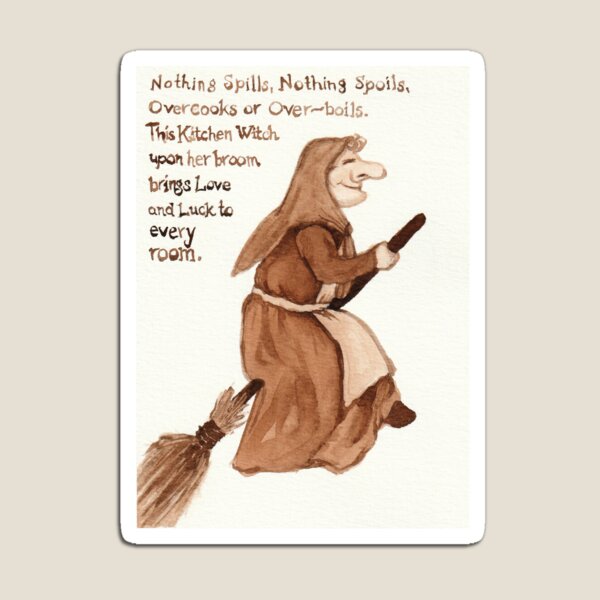 Nothing Spills, Nothing Spoils,
Overcooks or Over~boils.
This Kitchen Witch
upon her broom,
brings Love
and Luck to
every
room.